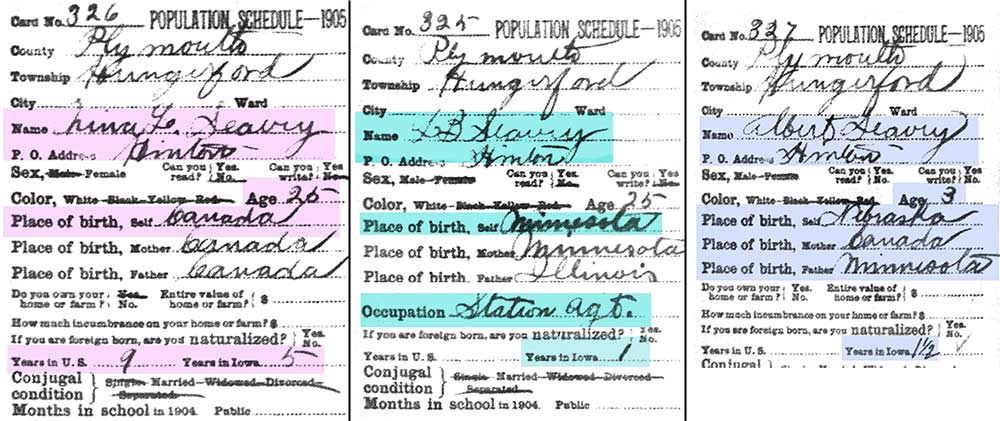 Card No. 326 POPULATION SCHEDULE—1905
County Plymouth
Township Hungerford
City Ward
Name Nina L. Seavry
P. O. Address Hinton
Sex, Male Female Can you read? Yes. No. Can you write? Yes No.
Color, White Black Yellow Red Age 25
Place of birth, Self Canada
Place of birth, Mother Canada
Place of birth, Father Canada
Do you own your home or farm? Yes. No. Entire value of home or farm? $
How much incumbrance on your home or farm? $
If you are foreign born, are you naturalized? Yes. No.
Years in U. S. 9 Years in Iowa 5
Conjugal condition Single Married Widowed Divorced Separated.
Months in school in 1904. Public
Card No. 325 POPULATION SCHEDULE—1905
County Plymouth
Township Hungerford
City Ward
Name L B Seavry
P. O. Address Hinton
Sex, Male Female Can you read? Yes. No. Can you write? Yes No.
Color, White Black Yellow Red Age 25
Place of birth, Self Minnesota
Place of birth, Mother Minnesota
Place of birth, Father Illinois
Do you own your home or farm? Yes. No. Entire value of home or farm? $
Occupation Station agt.
If you are foreign born, are you naturalized? Yes. No.
Years in U. S. Years in Iowa 1
Conjugal condition Single Married Widowed Divorced Separated.
Months in school in 1904. Public
Card No. 327 POPULATION SCHEDULE—1905
County Plymouth
Township Hungerford
City Ward
Name Albert Seavry
P. O. Address Hinton
Sex, Male Female Can you read? Yes. No. Can you write? Yes No.
Color, White Black Yellow Red Age 3
Place of birth, Self Nebraska
Place of birth, Mother Canada
Place of birth, Father Minnesota
Do you own your home or farm? Yes. No. Entire value of home or farm? $
How much incumbrance on your home or farm? $
If you are foreign born, are you naturalized? Yes. No.
Years in U. S. Years in Iowa 1½